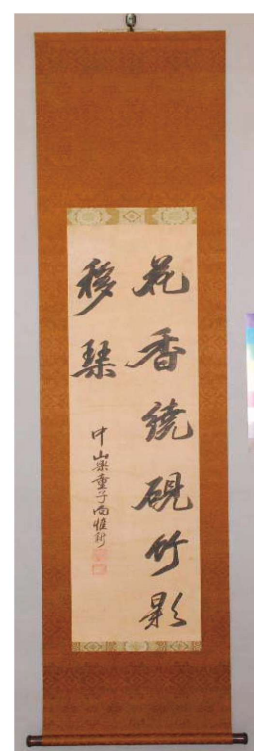 花香繞硯竹影
移琴
中山樂童子向惟新